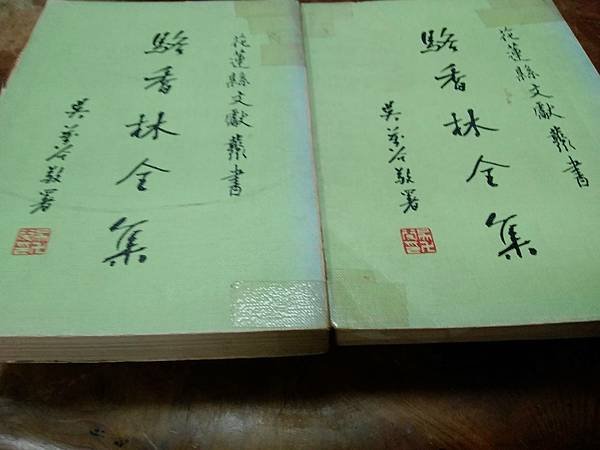 花蓮縣文獻叢書
駱香林全集
吳萬谷敬署
花蓮縣文獻叢書
駱香林全集
吳萬谷敬署